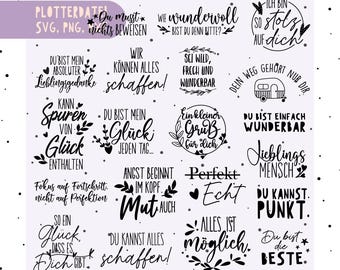 PLOTTERDATEI
SVG, PNG,
Du musst
nichts BEWEISEN
Wie
wundervoll
BIST DU DENN BITTE?
ICH BIN
SO stolz
auf
dich
DU BIST MEIN
ABSOLUTER
Lieblingsgedanke
WIR
KÖNNEN ALLES
schaffen!
SEI WILD,
FRECH UND
WUNDERBAR
DEIN WEG GEHÖRT NUR DIR.
KANN
Spuren
VON
Glück
ENTHALTEN
DU BIST MEIN
Glück
JEDEN TAG...
Ein kleiner
Gruß
für dich
DU BIST EINFACH
WUNDERBAR
Lieblings
MENSCH
Fokus auf Fortschritt,
nicht auf Perfektion
ANGST BEGINNT
IM KOPF.
Mut AUCH
Perfekt
Echt
DU KANNST.
PUNKT.
SO EIN
Glück
DASS ES
Dich GIBT
DU KANNST ALLES
schaffen!
ALLES IST
möglich.
Du bist
die
BESTE.